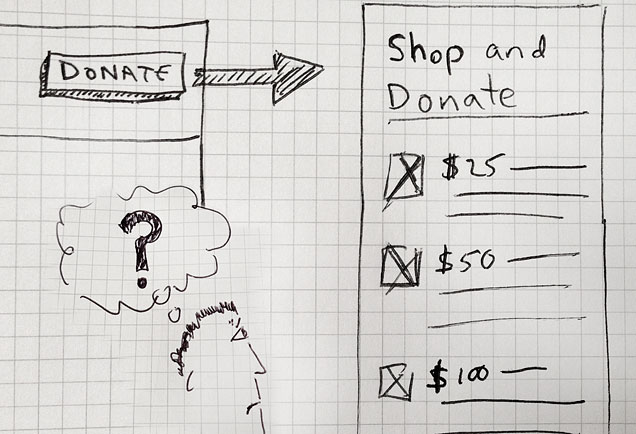 DONATE
Shop and
Donate
$25
?
$50
$100